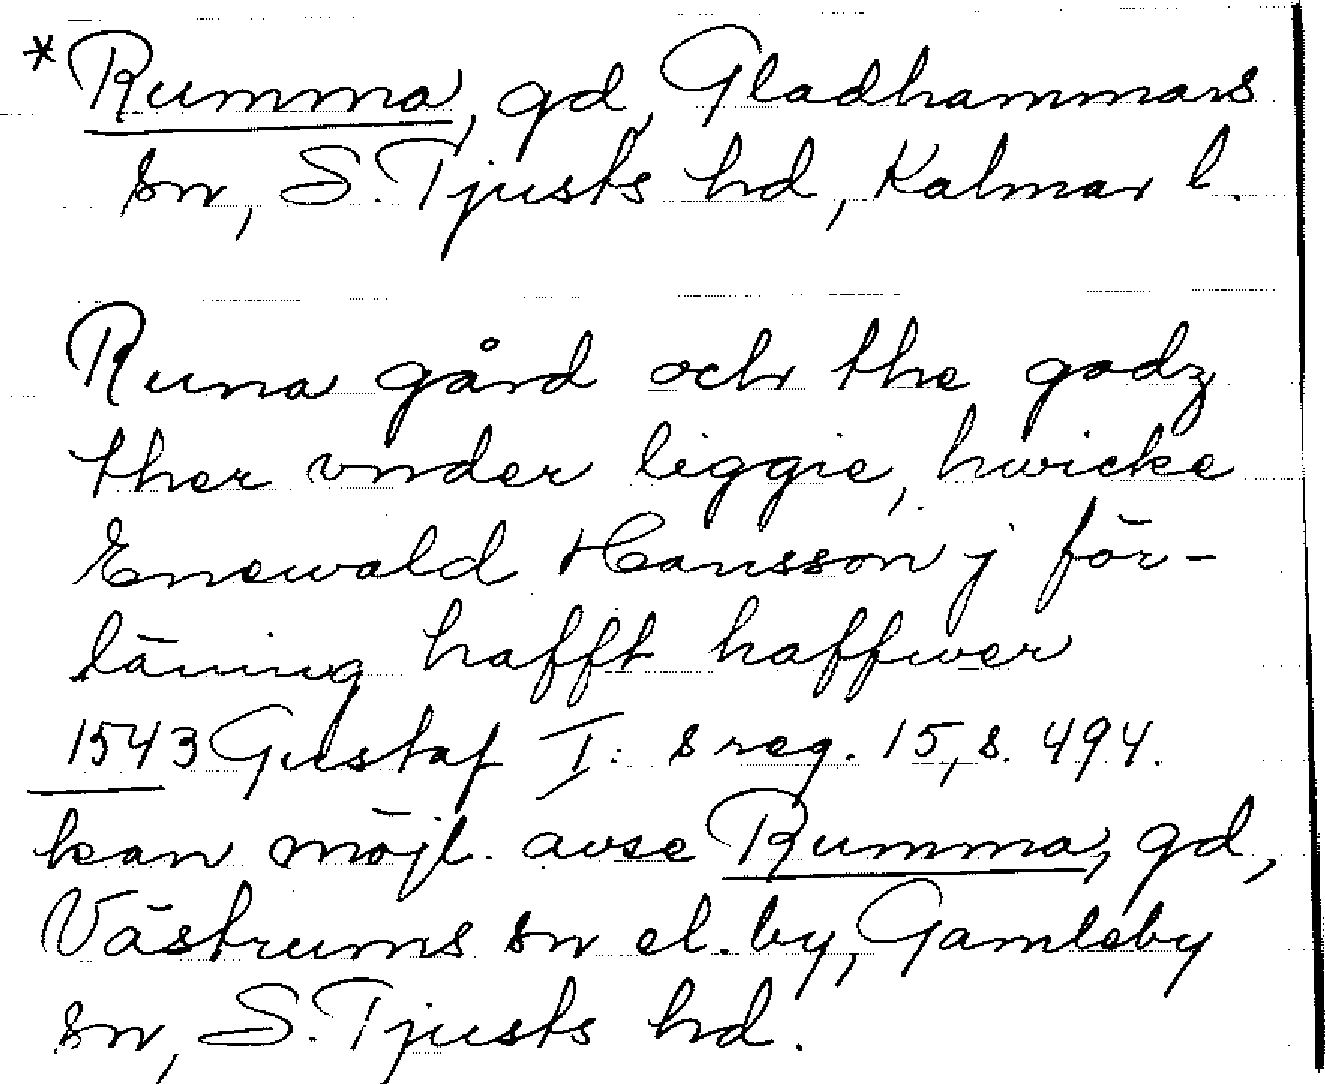 *Rumma, gd, Gladhammars
sn, S. Tjusts hd, Kalmar l.
Runa gård och the godz
ther vnder liggie, hwicke
Enewald Hansson j för-
läning hafft haffwer
1543 Gustaf I: s reg. 15, s. 494.
kan möjl. avse Rumma, gd,
Västrums sn el. by, Gamleby
sn, S. Tjusts hd.